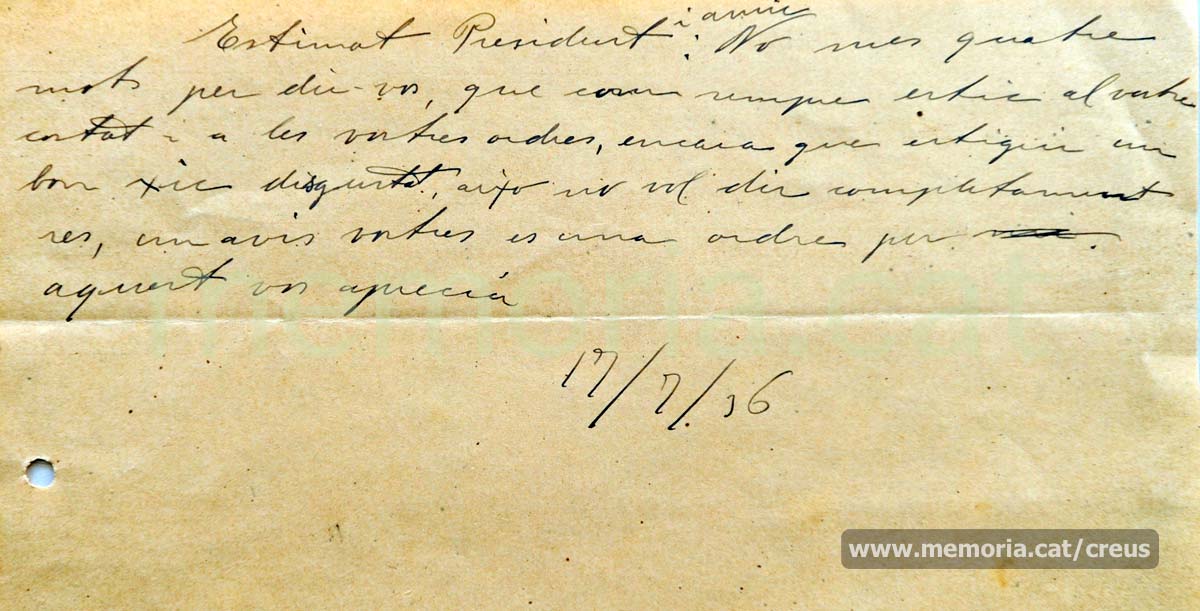 Estimat President i amic: No mes quatre
mots per dir-vos, que com sempre estic al vostre
costat i a les vostres ordres, encara que estigui un
bon xic disgustat, aixo no vol dir completament
res, un avis vostres es una ordre per
aquest vos aprecia
17/7/36
memoria.cat
www.memoria.cat/creus